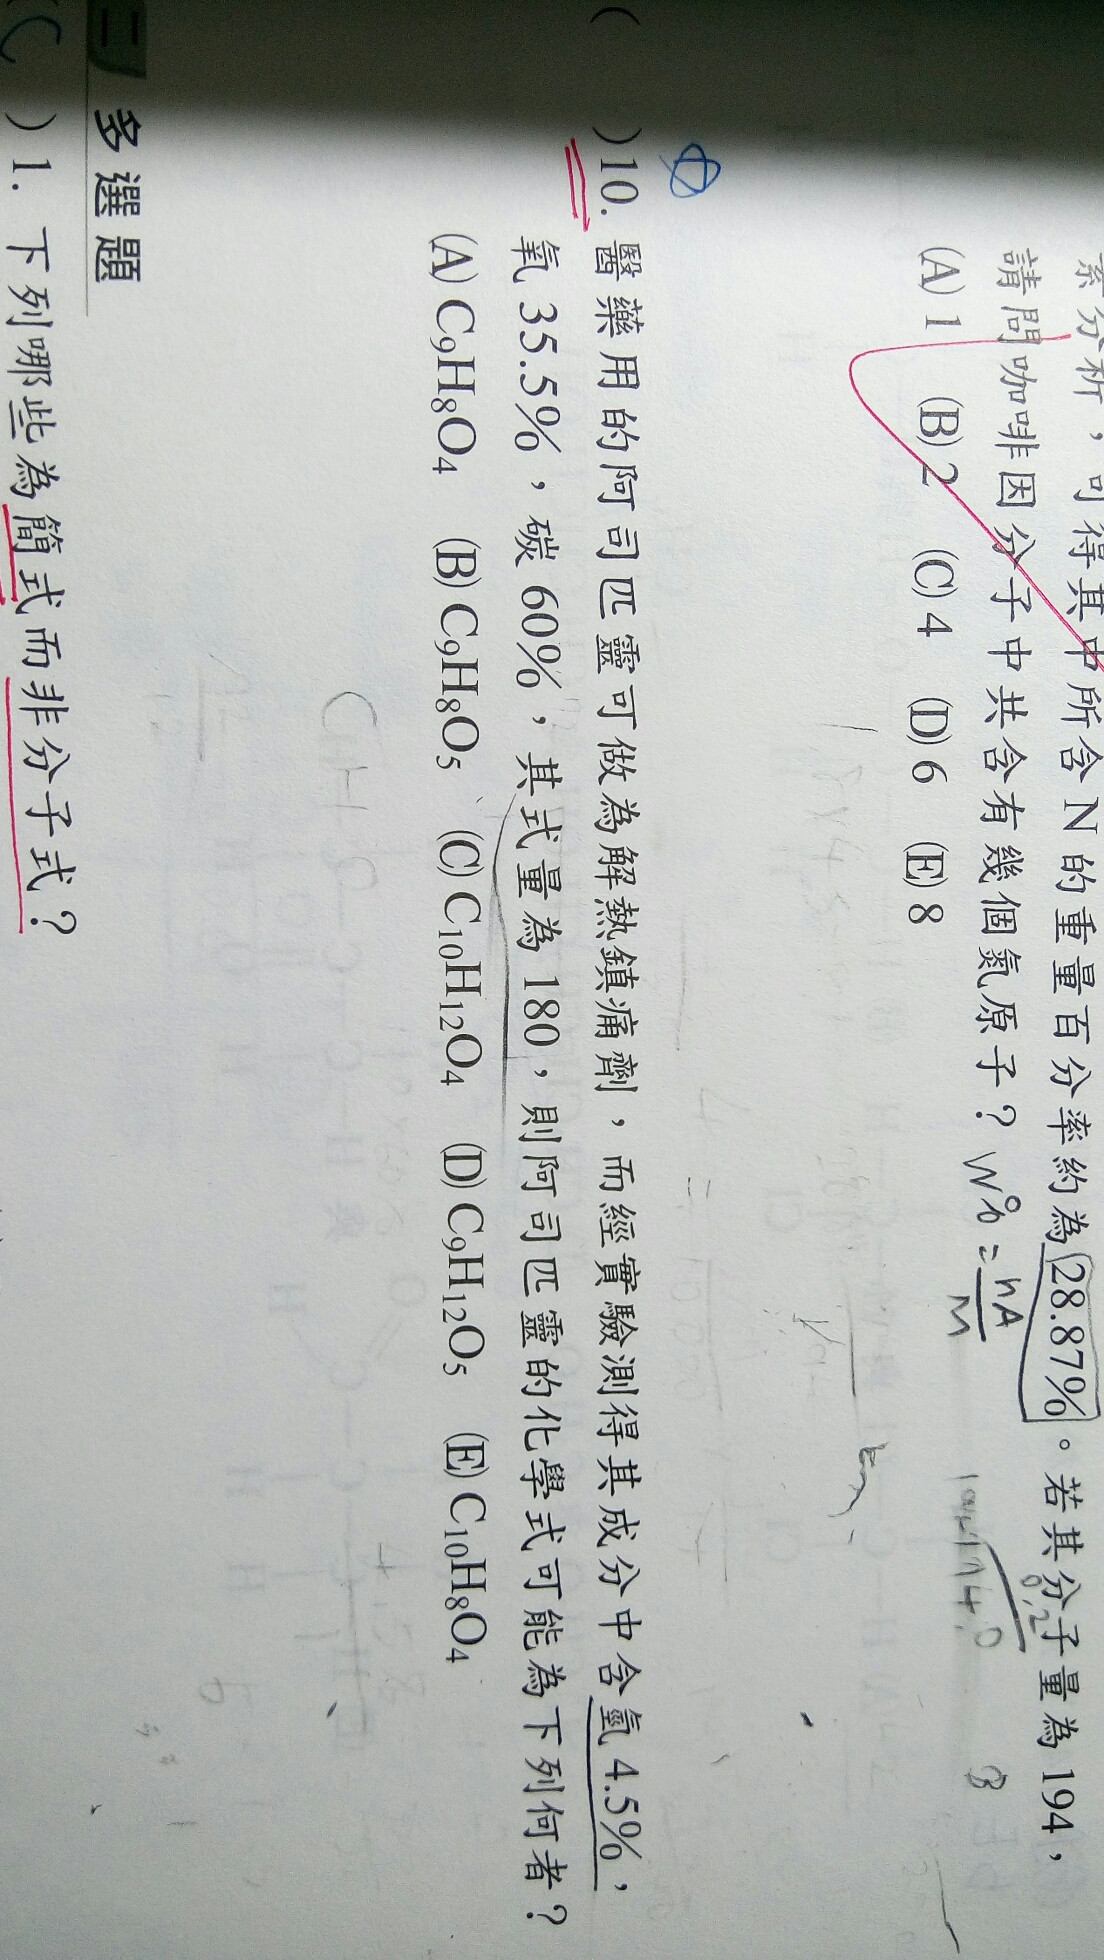 素分析，可得其中所含N的重量百分率約為28.87%。若其分子量為194，
請問咖啡因分子中共含有幾個氮原子？ W% = nA/M
(A) 1 (B) 2 (C) 4 (D) 6 (E) 8
( )10. 醫藥用的阿司匹靈可做為解熱鎮痛劑，而經實驗測得其成分中含氫4.5%，
氧35.5%，碳60%，其式量為180，則阿司匹靈的化學式可能為下列何者？
(A) C₉H₈O₄ (B) C₉H₈O₅ (C) C₁₀H₁₂O₄ (D) C₉H₁₂O₅ (E) C₁₀H₈O₄
二 多選題
( C )1. 下列哪些為簡式而非分子式？